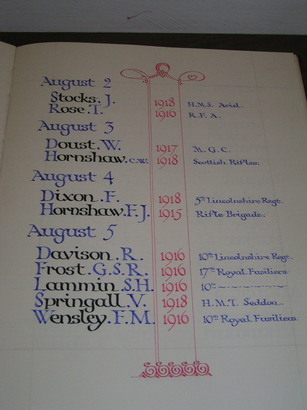 August 2
Stocks. J. 1918 H.M.S. Ariel.
Rose. T. 1916 R.F.A.
August 3
Doust. W. 1917 M.G.C.
Hornshaw. C.W. 1918 Scottish Rifles.
August 4
Dixon. F. 1918 5th Lincolnshire Regt.
Hornshaw. F.J. 1915 Rifle Brigade.
August 5
Davison. R. 1916 10th Lincolnshire Regt.
Frost. G.S.R. 1916 17th Royal Fusiliers
Lammin. S.H. 1916 10th
Springall. V. 1918 H.M.T. Seddon.
Wensley. F.M. 1916 10th Royal Fusiliers